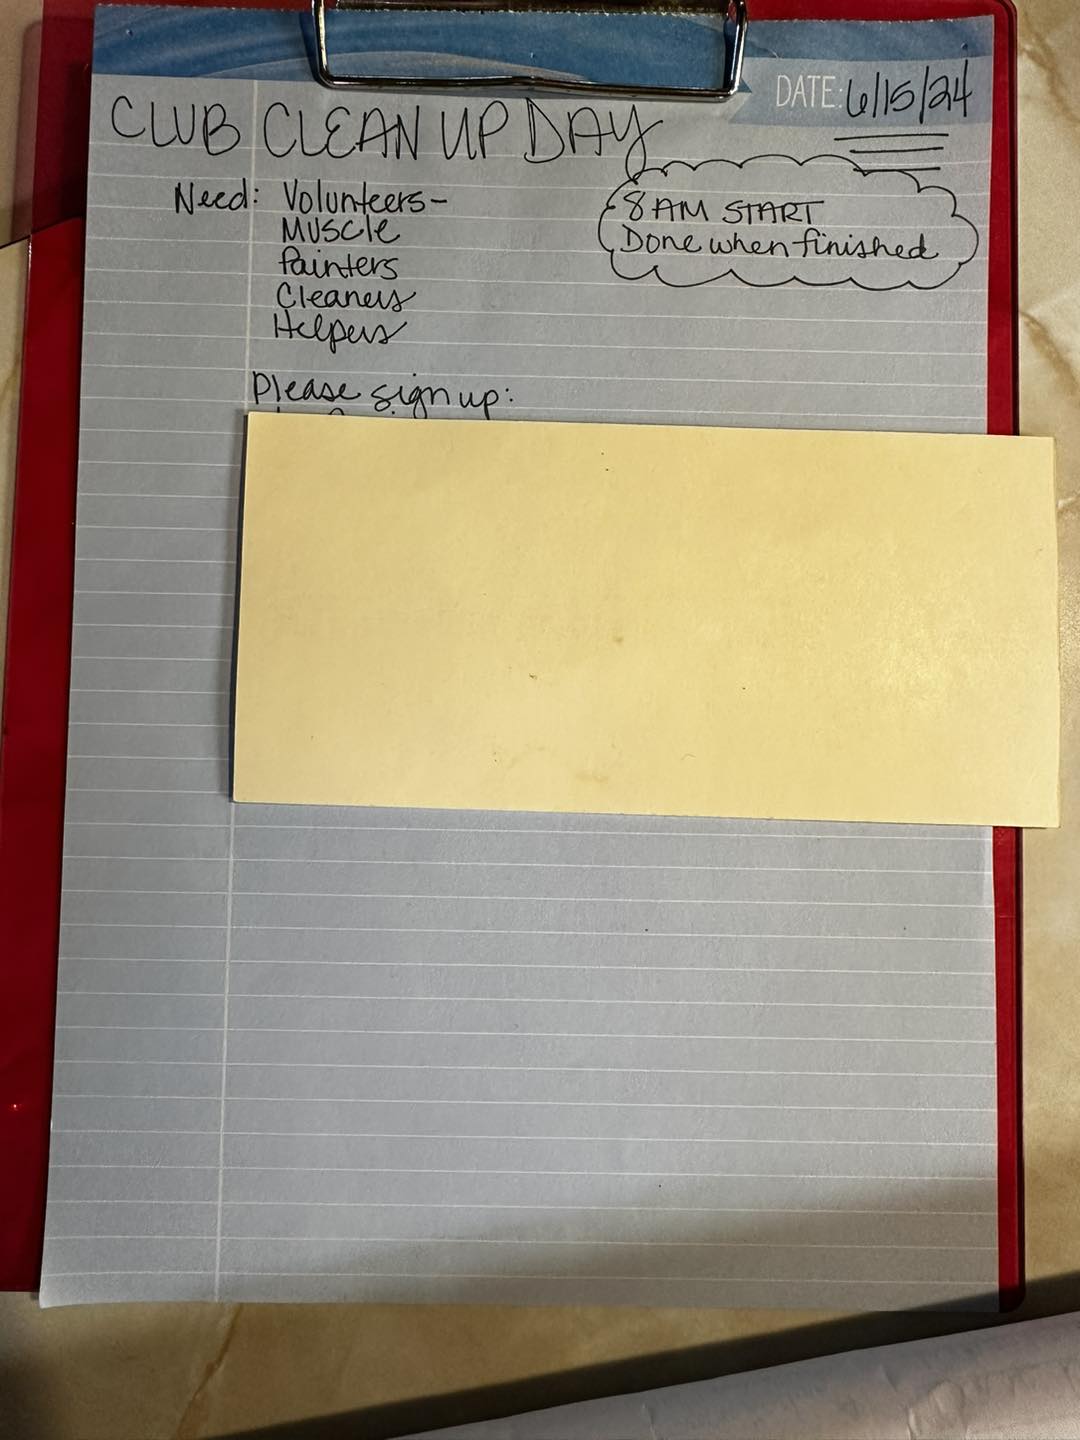 DATE: 6/15/24
CLUB CLEAN UP DAY
Need: Volunteers-
Muscle
Painters
Cleaners
Helpers
8 AM START
Done when finished
Please sign up: